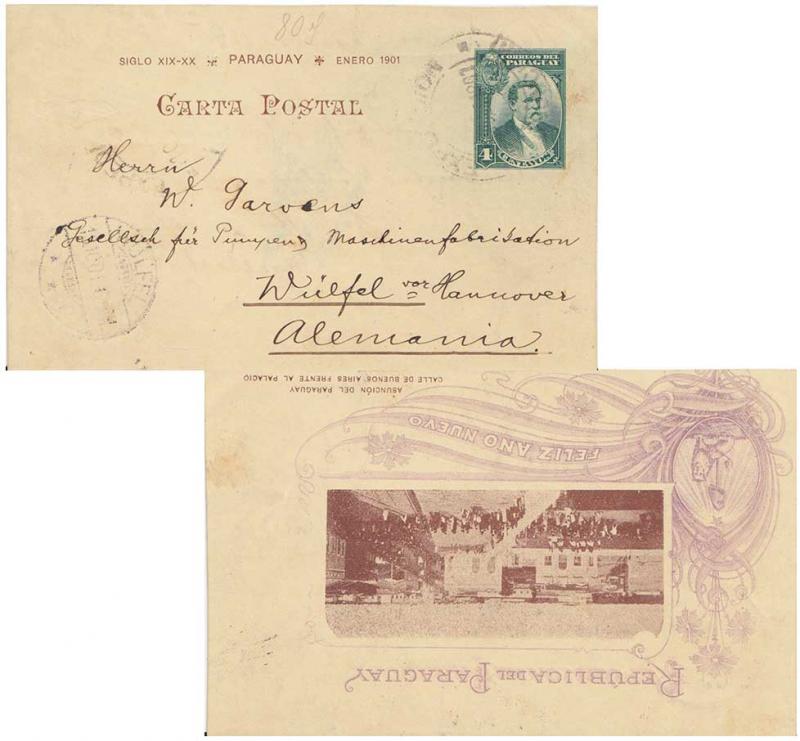 80
SIGLO XIX-XX PARAGUAY ENERO 1901
CARTA POSTAL
CORREOS DEL PARAGUAY
4
CENTAVOS
Herrn
W. Garvens
Gesellsch für Pumpen Maschinenfabrikation
Wülfel vor Hannover
Alemania.
WÜLFEL
ASUNCIÓN DEL PARAGUAY
CALLE DE BUENOS AIRES FRENTE AL PALACIO
FELIZ AÑO NUEVO
REPÚBLICA DEL PARAGUAY